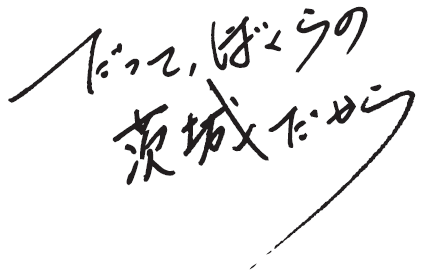 だって、ぼくらの
茨城だから